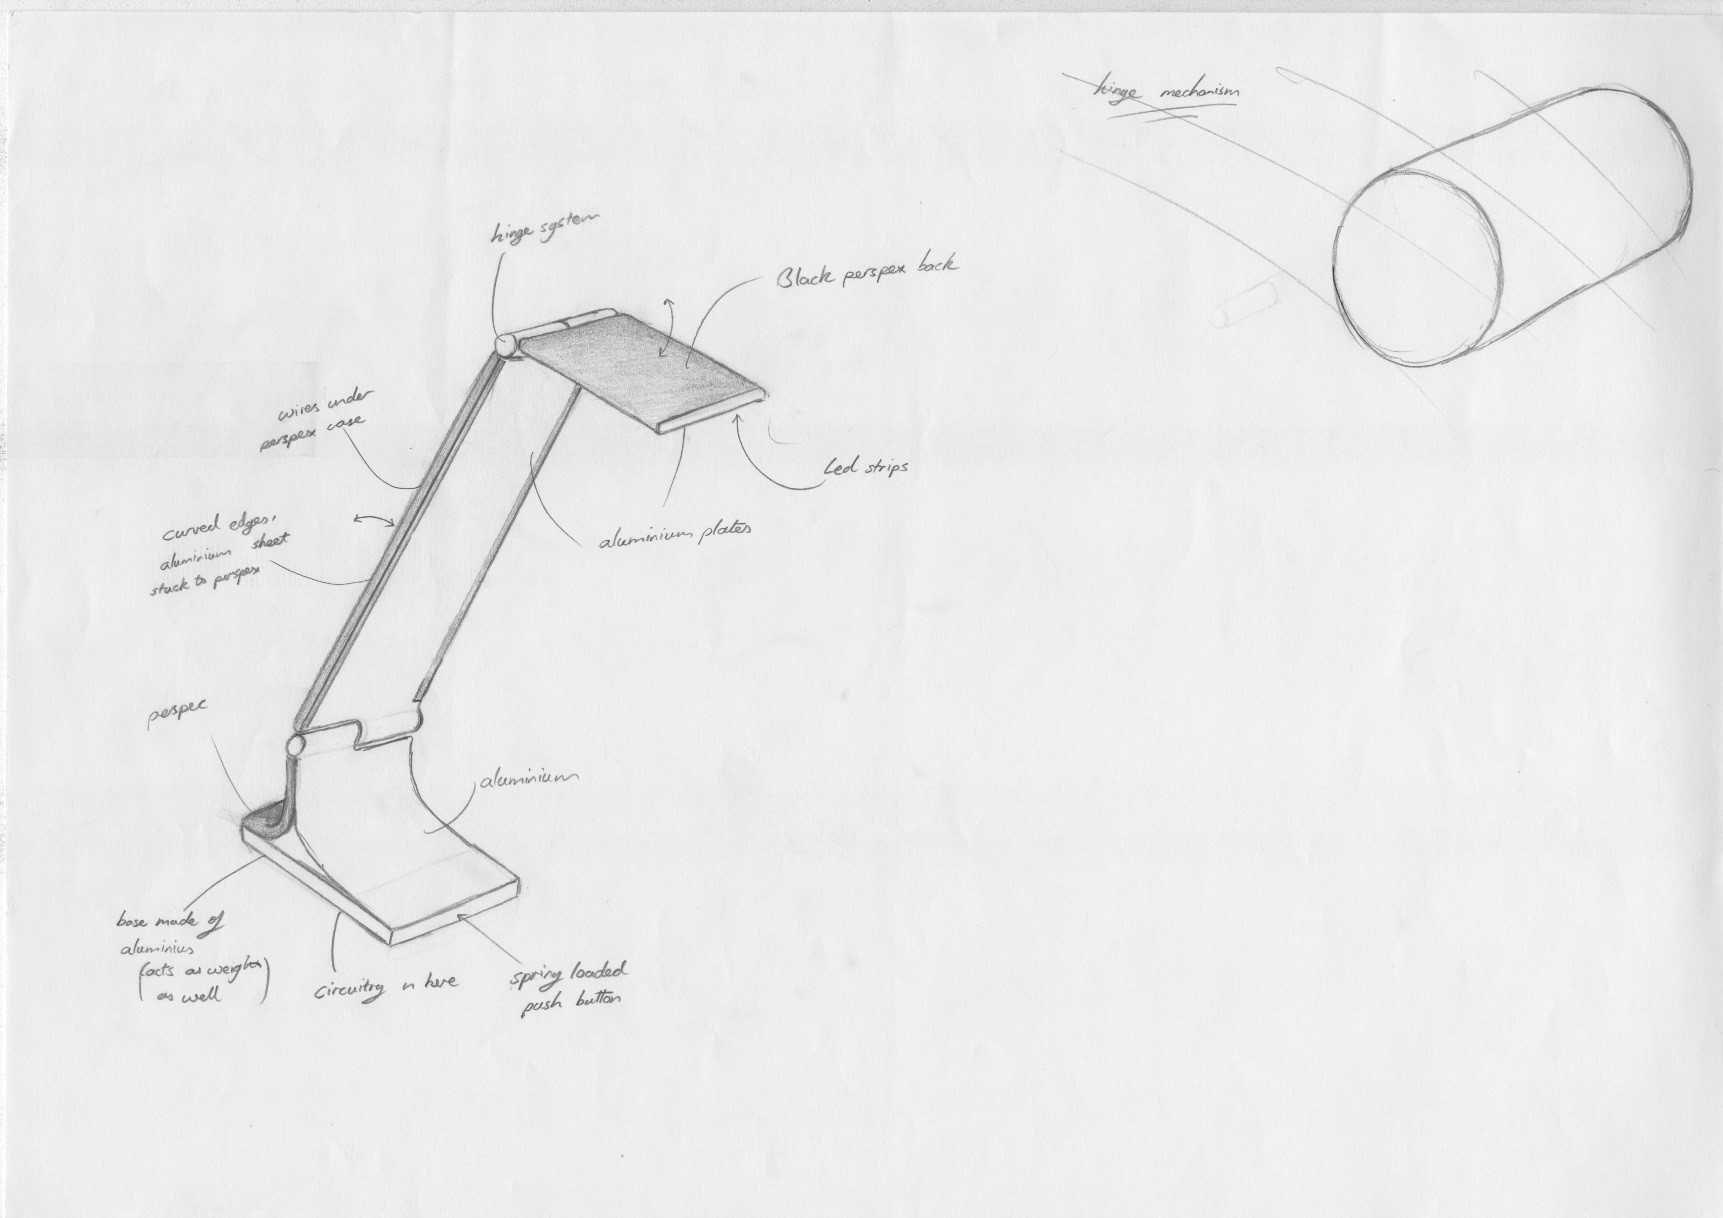 hinge mechanism
hinge system
Black perspex back
wires under
perspex case
Led strips
curved edges,
aluminium sheet
stuck to perspex
aluminium plates
perspec
aluminium
base made of
aluminius
(acts as weight
as well)
circuitry in here
spring loaded
push button